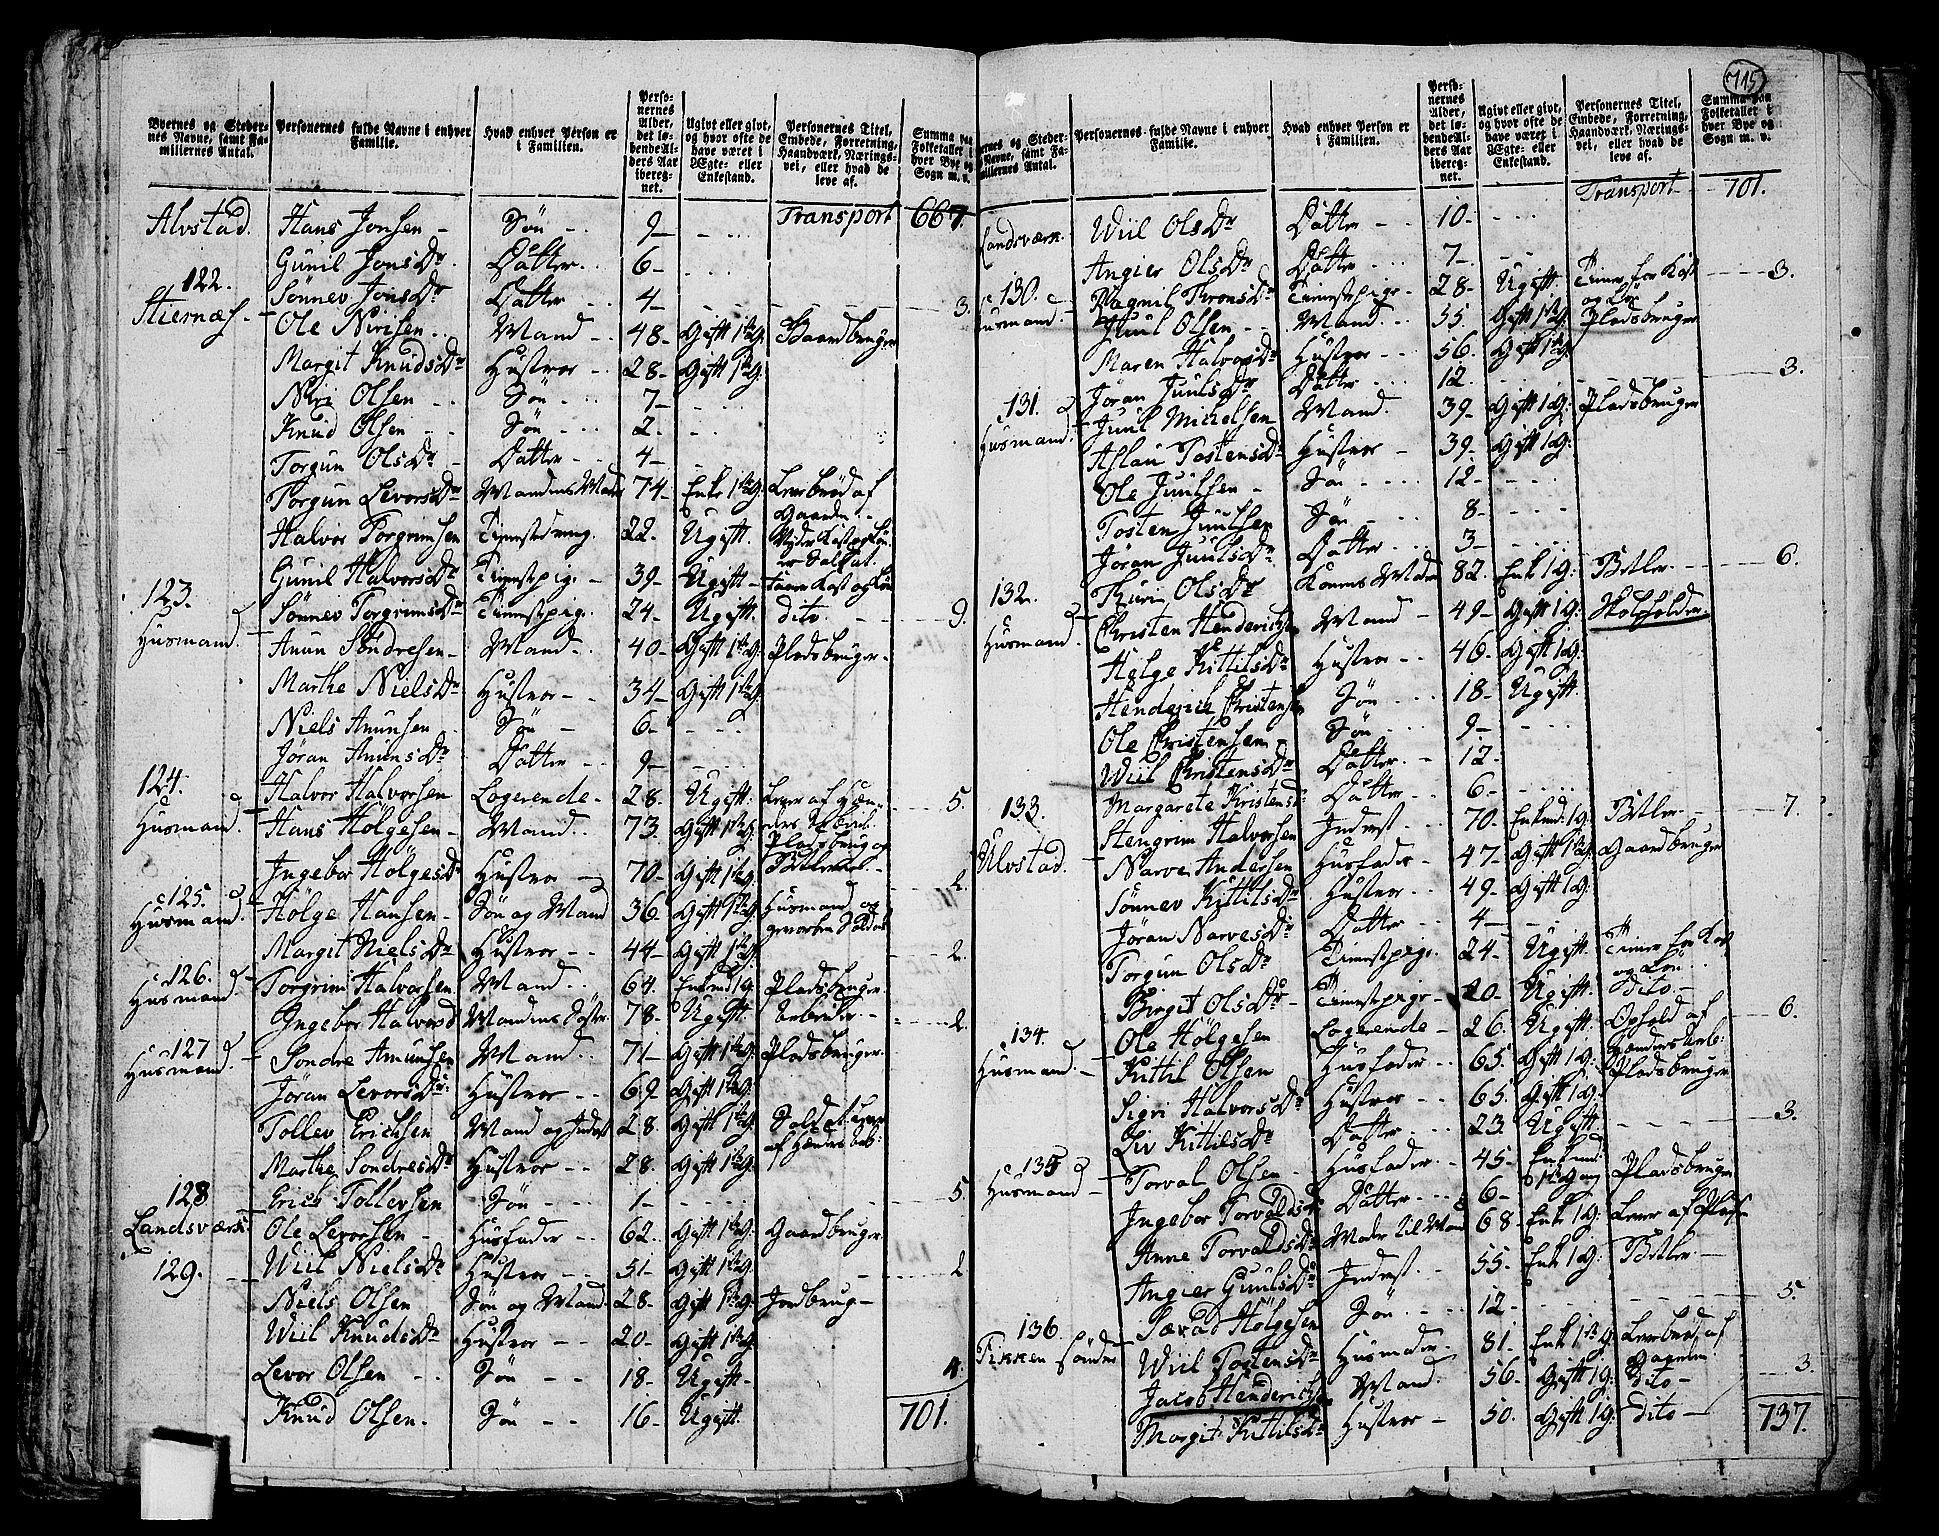 715
Byernes og Steder-
nes Navne, samt Fa-
miliernes Antal.
Personernes fulde Navne i enhver
Familie.
Hvad enhver Person er
i Familien.
Perso-
nernes
Alder,
det lø-
bende Al-
ders Aar
ibereg-
net.
Ugivt eller givt,
og hvor ofte de
have været i
Ægte- eller
Enkestand.
Personernes Titel,
Embede, Forretning,
Haandværk, Nærings-
vei, eller hvad de
leve af.
Summa paa
Folketallet i
hver Bye og
Sogn m. v.
Alvstad. Hans Jonsen - Søn - - 9 - Transport 667.
Gunil Jons Dr Datter - - 6 -
122. Sønnev Jons Dr Datter - - 4 - 3.
Stiernæs - Ole Nirisen - - Mand - - 48 - Gift 1ste G. Gaardbruger
Margit Knuds Dr Hustroe - - 28 - Gift 1ste G.
Niri Olsen - - Søn - - 7 -
Knud Olsen - - Søn - - 2 -
Torgun Ols Dr - Datter - - 4 -
Torgun Levors Dr Mandens Moder 74 - Enke 1ste G. Levebrød af
Gaarden -
Halvor Torgrimsen Tienestdreng. 22. Ugift.
Gunil Halvors Dr Tienestpige - 39 - Ugift -
123. Sønnev Torgrims Dr Tienestpig. - 24 - Ugift. dito. - 9.
Husmand. - Amun Søndresen - Mand - - 40 - Gift 1ste G. Pladsbruger -
Marthe Niels Dr Hustroe - - 34 - Gift 1ste G.
Niels Amunsen - Søn - 6 -
Jøran Amuns Dr Datter - - 9 -
124. Halvor Halvorsen Logerende - 28. Ugift. Lever af Hæn-
ders Arbeid. 5.
Husmand. Hans Hölgesen - Mand - - 73. Gift 1ste G. Pladsbrug og
Ingebor Hölges Dr Hustroe - 70 - Gift 1ste G. Betlerie - 2.
125. Husmand. Hölge Hansen - Søn og Mand 36. Gift 1ste G. Husmand og
gevorben Soldat
Margit Niels Dr Hustroe - - 44 - Gift 1ste G. 2.
126. Husmand - Torgrim Halvorsen Mand - - 64. Enkemd 1 G. Pladsbruger.
Ingebor Halvors D Mandens Søster 78 - Ugift. - 2.
127 Husmand. - Søndre Amunsen Mand - - 71 - Gift 1ste G. Pladsbruger.
Jøran Levors Dr Hustroe - - 69 Gift 1ste G.
Tollev Erichsen Mand og Inderst 28. Gift 1ste G. Soldat Lever
af Hænders Arb:
Marthe Søndres Dr Hustroe - - 28. Gift 1ste G.
128 Erics Tollevsen Søn - - 1 - 5.
Landsværk Ole Levorsen - Husfader - - 62. Gift 1ste G. Gaardbruger.
129. - Wiil Niels Dr Hustroe - - 51 - Gift 1ste G. 2
Niels Olsen Søn og Mand. 28 - Gift 1ste G. Jordbrug -
Wiil Knuds Dr Hustroe - - 20 - Gift 1ste G.
Levor Olsen - - Søn - - 18 - Ugift - 4.
Knud Olsen - Søn - - 16 - Ugift. 701.
ernes og Steder-
Navne, samt Fa-
millernes Antal.
Personernes fulde Navne i enhver
Familie.
Hvad enhver Person er
i Familien.
Perso-
nernes
Alder,
det lø-
bende Al-
ders Aar
ibereg-
net.
Ugivt eller givt,
og hvor ofte de
have været i
Ægte- eller
Enkestand.
Personernes Titel,
Embede, Forretning,
Haandværk, Nærings-
vei, eller hvad de
leve af.
Summa paa
Folketallet i
hver Bye og
Sogn m. v.
Transport 701.
Landsværk. Wiil Ols Dr Datter - - 10 -
Angier Ols Dr Datter - - 7 -
130. Ragnil Throns Dr Tienestpige - 28 - Ugift. Tiener for Kost
og Løn 3.
Husmand. - Juul Olsen - - Mand - - 55. Gift 1ste G. Pladsbruger
Maren Halvors Dr Hustroe - - 56. Gift 1ste G.
Jøran Juuls Dr Datter - - 12. 3.
131. Husmand. Juul Michelsen Mand. 39 - Gift 1 G. Pladsbruger
Aslau Tostens Dr Hustroe - 39 - Gift 1 G.
Ole Juulsen - Søn - - 12 -
Tosten Juulsen Søn - - 8 -
Jøran Juuls Dr Datter - - 3 -
132. Thuri Ols Dr Konens Moder 82. Enk 1 G. Betler - 6.
Husmand. Christen Henderichsen Mand - 49 - Gift 1 G.
Helge Kittils Dr Hustroe - - 46 - Gift 1 G.
Henderich Christensen Søn - - 18 - Ugift.
Ole Christensen - Søn - - 9 -
Wiil Christens Dr Datter - - 12.
Margarete Kristens D Datter - - 6 -
133. Stengrim Halvorsen Inderst - - 70 - Enkmd. 1 G. Betler - 7.
Ulvstad. - Narve Andersen Husfader - 47 - Gift 1ste G. Gaardbruger
Sönnev Kittils Dr Hustroe - - 49 - Gift 1 G.
Jøran Narves Dr Datter - - 4 -
Torgun Ols Dr Tienestpige. 24 - Ugift. Tiener for Kost
og Løn -
Birgit Ols Dr - Tienestpige - 20 - Ugift. Dito -
134. Ole Hölgesen Logerende - 26. Ugift. Ophold af
Hænders Arb: 6.
Husmand. - Kittil Olsen Husfader - - 65. Gift 1 G. Pladsbruger
Sigri Halvors Dr Hustroe - - 65. Gift 1 G.
Liv Kittils Dr Datter - - 23. Ugift. 3.
135 Husmand - Torval Olsen - Husfader - - 45 - Enkemd. Pladsbruger
Ingebor Torvalds Dr Datter - - 6 -
Anne Torvalds Dr Moder til Mand 68 - Enk 1 G. Lever af Pladsen
Angier Guuls Dr Inderst - - 55 - Enk 1 G. Betler -
Tarvad Hölgesen Søn - - 12 - 5.
136. Tikken sönder Wiil Tostens Dr Husmoder - 81 - Enk 1ste G. Levebrød af
Jacob Henderichs Mand - 56. Gift 1 G. Dito - 3.
Margit Kittils Dr Hustroe - 50. Gift 1 G. Dito - 737.